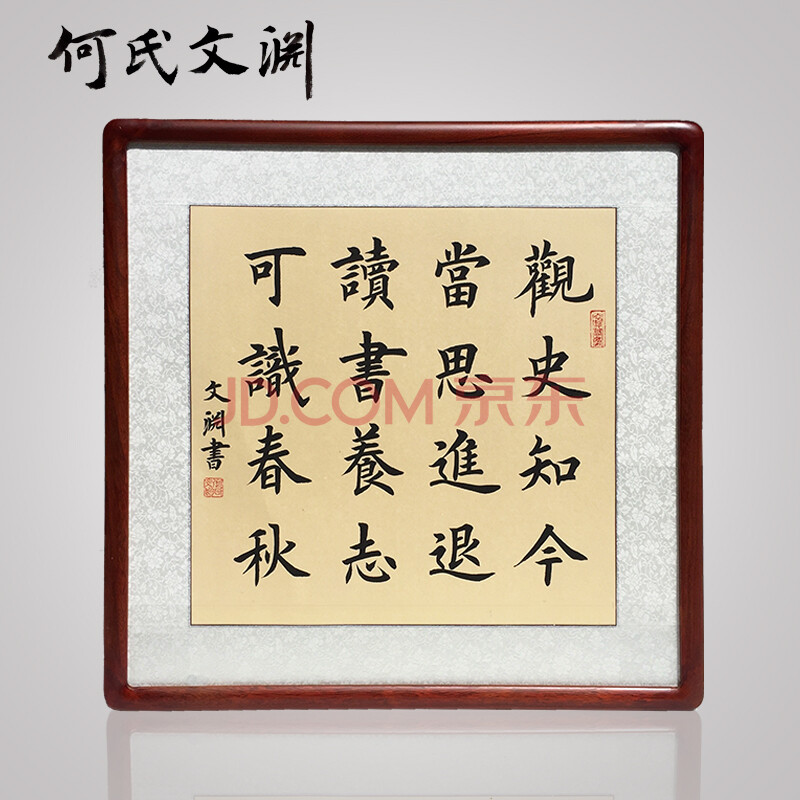 何氏文渊
觀史知今
當思進退
讀書養志
可識春秋
文渊書
JD.COM 京东